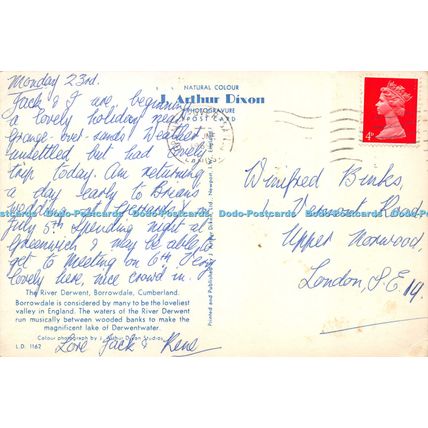 Monday 23rd.
Jack & I are beginning
a lovely holiday near
Grange-over-sands Weather
unsettled but had lovely
trip today. Am returning
a day early to Brian
wedding
July 5th spending night at
Greenwich & may be able to
get to meeting on 6th
lovely here, nice crowd in.
The River Derwent, Borrowdale, Cumberland.
Borrowdale is considered by many to be the loveliest
valley in England. The waters of the River Derwent
run musically between wooded banks to make the
magnificent lake of Derwentwater.
Colour photograph by J. Arthur Dixon Studios.
L.D. 1162
Love Jack & Rene
NATURAL COLOUR
J. Arthur Dixon
PHOTOGRAVURE
POST CARD
Printed and Published by J. Arthur Dixon Ltd., Newport,
4D
Winifred Binks,
Road
Upper Norwood
London, S.E 19.
Dodo-Postcards Dodo-Postcards Dodo-Postcards Dodo-Postcards Dodo-Postcards